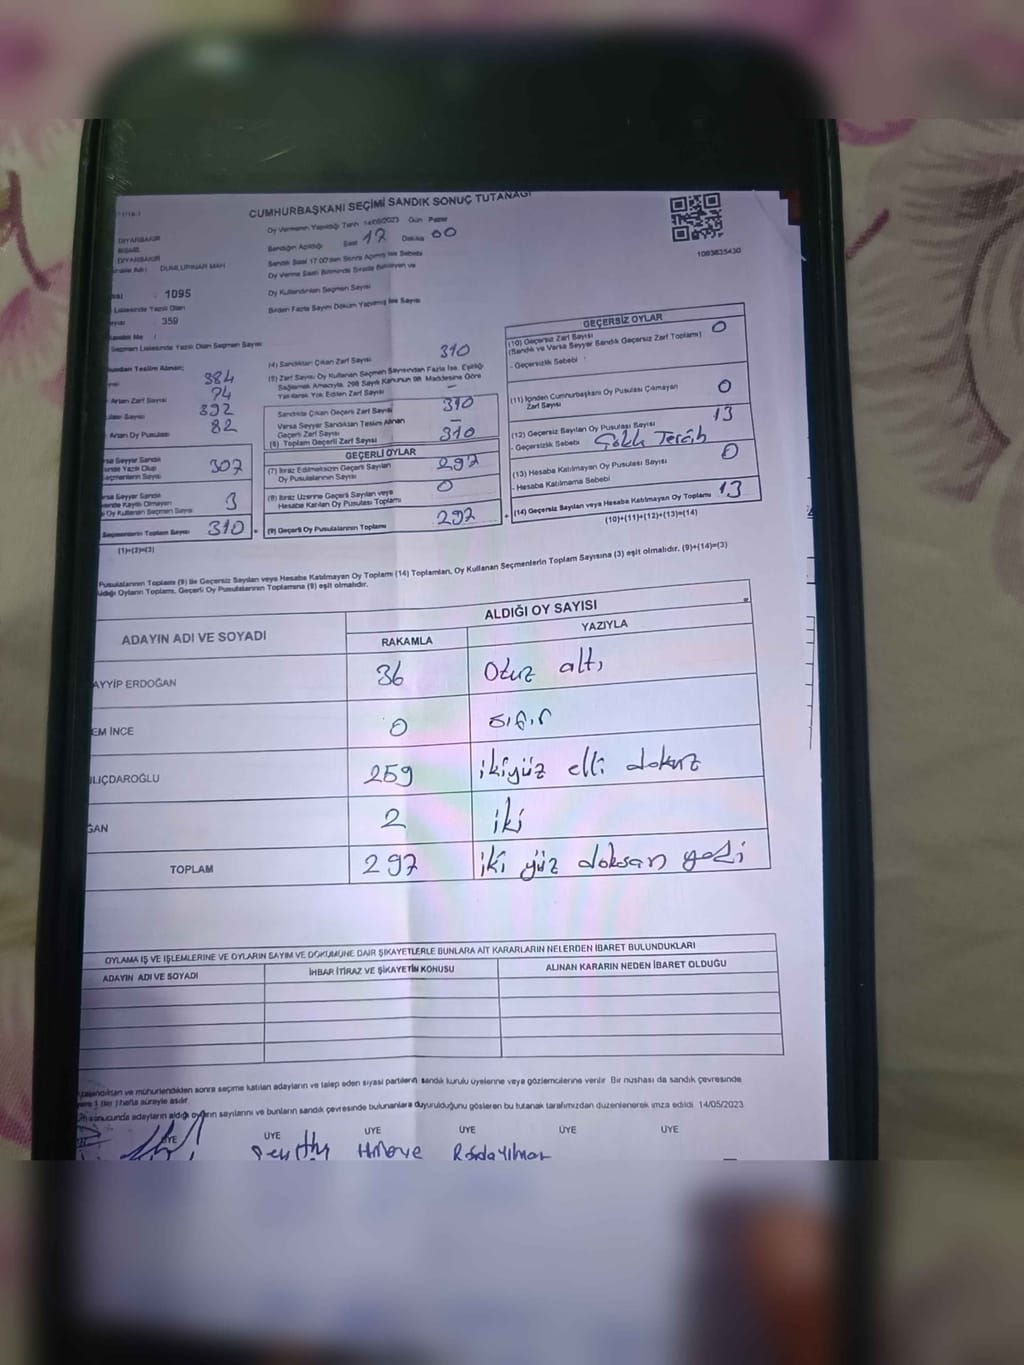 CUMHURBAŞKANI SEÇİMİ SANDIK SONUÇ TUTANAĞI
Oy Vermenin Yapıldığı Tarih 14/05/2023 Gün Pazar
DİYARBAKIR
BİSMİL
DİYARBAKIR
DUMLUPINAR MAH
Sandığın Açıldığı Saat 17 Dakika 00
Sandık Saat 17:00'den Sonra Açılmış İse Sebebi
Oy Verme Saati Bitiminde Sırada Bekleyen ve
Oy Kullandırılan Seçmen Sayısı
Birden Fazla Sayım Döküm Yapılmış İse Sayısı
1095
Listesinde Yazılı Olan
359
Seçmen Listesinde Yazılı Olan Seçmen Sayısı
Teslim Alınan;
384
Artan Zarf Sayısı 74
392
Artan Oy Pusulası 82
307
3
Oy Kullanan Seçmen Sayısı
Seçmenlerin Toplam Sayısı 310
(1)+(2)=(3)
(4) Sandıktan Çıkan Zarf Sayısı 310
(5) Zarf Sayısı Oy Kullanan Seçmen Sayısından Fazla İse, Eşitliği
Sağlamak Amacıyla, 298 Sayılı Kanunun 98. Maddesine Göre
Yakılarak Yok Edilen Zarf Sayısı –
Sandıkta Çıkan Geçerli Zarf Sayısı 310
Varsa Seyyar Sandıktan Teslim Alınan
Geçerli Zarf Sayısı –
(6) Toplam Geçerli Zarf Sayısı 310
GEÇERLİ OYLAR
(7) İtiraz Edilmeksizin Geçerli Sayılan
Oy Pusulalarının Sayısı 297
(8) İtiraz Üzerine Geçerli Sayılan veya
Hesaba Katılan Oy Pusulası Toplamı 0
(9) Geçerli Oy Pusulalarının Toplamı 297
1093835430
GEÇERSİZ OYLAR
(10) Geçersiz Zarf Sayısı 0
(Sandık ve Varsa Seyyar Sandık Geçersiz Zarf Toplamı)
- Geçersizlik Sebebi :
(11) İçinden Cumhurbaşkanı Oy Pusulası Çıkmayan
Zarf Sayısı 0
(12) Geçersiz Sayılan Oy Pusulası Sayısı 13
- Geçersizlik Sebebi : Çoklu Tercih
(13) Hesaba Katılmayan Oy Pusulası Sayısı 0
- Hesaba Katılmama Sebebi
(14) Geçersiz Sayılan veya Hesaba Katılmayan Oy Toplamı 13
(10)+(11)+(12)+(13)=(14)
Pusulalarının Toplamı (9) ile Geçersiz Sayılan veya Hesaba Katılmayan Oy Toplamı (14) Toplamları, Oy Kullanan Seçmenlerin Toplam Sayısına (3) eşit olmalıdır. (9)+(14)=(3)
Oyların Toplamı, Geçerli Oy Pusulalarının Toplamına (9) eşit olmalıdır.
ADAYIN ADI VE SOYADI
ALDIĞI OY SAYISI
RAKAMLA YAZIYLA
AYYİP ERDOĞAN 36 Otuz altı
EM İNCE 0 sıfır
ILIÇDAROĞLU 259 ikiyüz elli dokuz
ĞAN 2 iki
TOPLAM 297 iki yüz doksan yedi
OYLAMA İŞ VE İŞLEMLERİNE VE OYLARIN SAYIM VE DÖKÜMÜNE DAİR ŞİKAYETLERLE BUNLARA AİT KARARLARIN NELERDEN İBARET BULUNDUKLARI
ADAYIN ADI VE SOYADI İHBAR İTİRAZ VE ŞİKAYETİN KONUSU ALINAN KARARIN NEDEN İBARET OLDUĞU
ve mühürlendikten sonra seçime katılan adayların ve talep eden siyasi partilerin sandık kurulu üyelerine veya gözlemcilerine verilir. Bir nüshası da sandık çevresinde
hafta süreyle asılır.
sonucunda adayların aldığı oyların sayılarını ve bunların sandık çevresinde bulunanlara duyurulduğunu gösteren bu tutanak tarafımızdan düzenlenerek imza edildi. 14/05/2023
ÜYE ÜYE ÜYE ÜYE ÜYE ÜYE